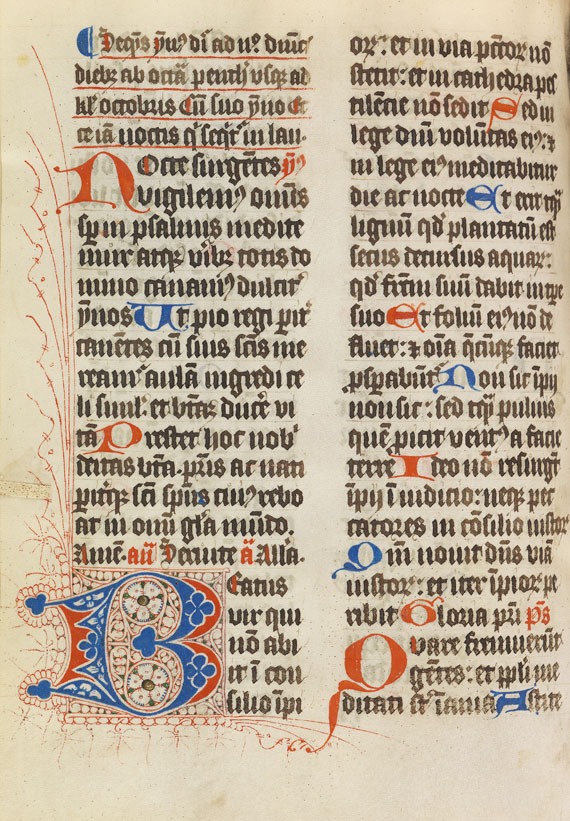 Seq̄ns ẏn⁹ dı̄ ad nº dn̄ıc̄
dieb⁊ ab octā penth̓ vsq⁊ ad
kl̓ octobris Cū suo ẏn̄o et
ec̄ iā noctis q̓ seq̄t̓ in lau⸗
Nocte surgētes ẏ⁹
vigilem⁹ om̄s
sp̄ in psalmis medite
mur atq⁊ virib⁊ totis do
mino canam⁹ dulcit̓
ẏnos Ut pio regi pit̓
canētes cū suis scīs me
ream̓ aulā ingredi ce
li siml̓ et btāꝫ duc̄e vi
tā Prestet hoc nob̓
deitas bt̄a pr̄is ac nati
pitq⁊ scī sp̄us cui⁹ rebo
at in omī gl̄ia mūdo.
Amē. añ Seruite ā Alľa.
Beatus
vir qui
nō abi
it ī con
silio īpi
or⁊ et in via pc̄tor⁊ nō
stetit: et in cathedra pes
tilēcie nō sedit Sed in
lege dn̄i volūtas ei⁹: ⁊
in lege ei⁹ meditabitur
die ac nocte Et erit tq̄̓
lignū qd̓ plantatū est
secus decursus aquar⁊:
qd̓ fructū suū dabit in tp̄e
suo Et foliū ei⁹ nō de
fluet: ⁊ om̄a q̄cūq⁊ faciet
ꝓsperabūt̓ Non sic īpij
non sic: sed tq̄̓ puluis
quē ꝓicit vent⁹ a facie
terre Ideo nō resurgūt
īpij ī iudicio: neq⁊ pec
catores in cōsilio iustor⁊
Qm̄ nouit dn̄s viā
iustor⁊: et iter īpior⁊ pe
ribit Gloria pr̄i p̄s
Quare fremuerūt
gētes: et ppl̓i me
ditati st̄ inania Astite